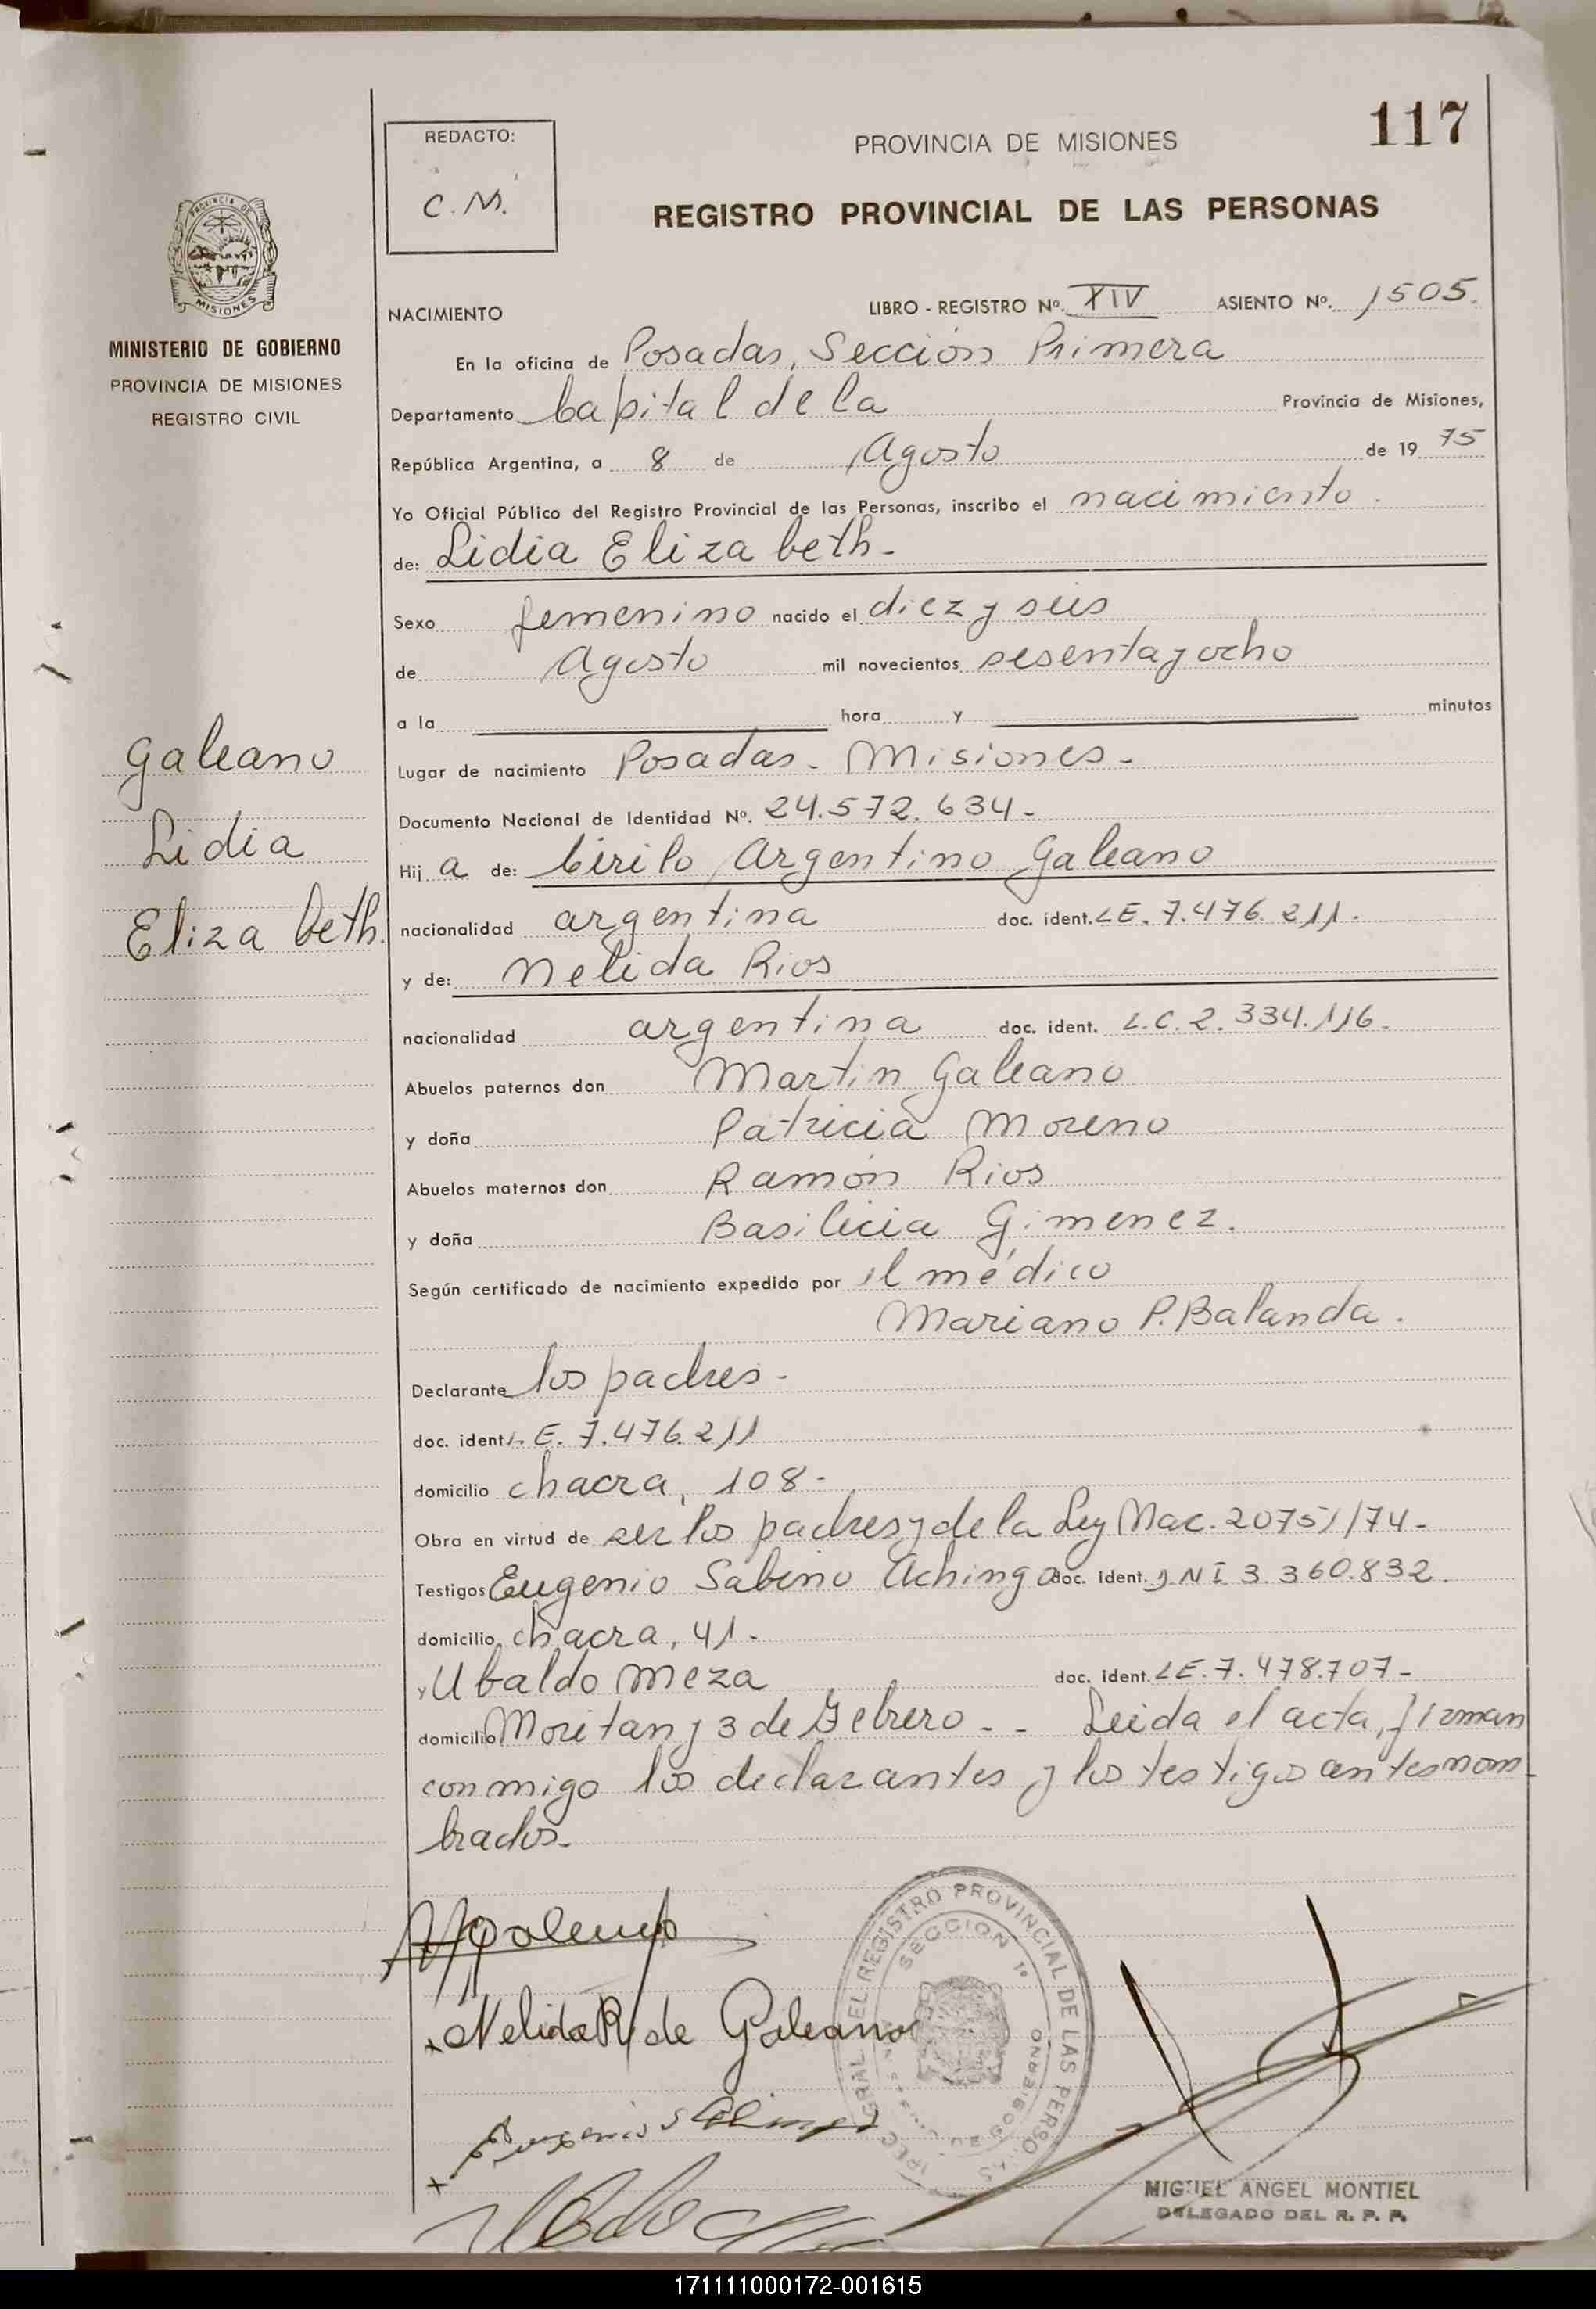 117
REDACTO:
C. M.
PROVINCIA DE MISIONES
REGISTRO PROVINCIAL DE LAS PERSONAS
PROVINCIA DE
MISIONES
MINISTERIO DE GOBIERNO
PROVINCIA DE MISIONES
REGISTRO CIVIL
NACIMIENTO LIBRO - REGISTRO Nº. XIV ASIENTO Nº. 1505.
En la oficina de Posadas, Sección Primera
Departamento Capital de la Provincia de Misiones,
República Argentina, a 8 de Agosto de 19 75
Yo Oficial Público del Registro Provincial de las Personas, inscribo el nacimiento.
de: Lidia Elizabeth-
Sexo femenino nacido el diez y seis
de Agosto mil novecientos sesenta y ocho
a la hora y minutos
Galeano
Lidia
Elizabeth.
Lugar de nacimiento Posadas - Misiones -
Documento Nacional de Identidad Nº. 24.572.634-
Hij a de: Cirilo Argentino Galeano
nacionalidad argentina doc. ident. LE. 7.476.211.
y de: Nelida Rios
nacionalidad argentina doc. ident. L.C. 2.334.116.
Abuelos paternos don Martin Galeano
y doña Patricia Moreno
Abuelos maternos don Ramón Rios
y doña Basilicia Gimenez.
Según certificado de nacimiento expedido por el médico
Mariano P. Balanda.
Declarante los padres-
doc. ident L. E. 7.476.211
domicilio chacra, 108-
Obra en virtud de ser los padres y de la Ley Nac. 20751/74-
Testigos Eugenio Sabino Aching doc. ident. DNI 3.360.832.
domicilio chacra, 41-
y Ubaldo Meza doc. ident. LE. 7.478.707-
domicilio Moritan y 3 de Febrero - - Leida el acta, firman
conmigo los declarantes y los testigos antes nom-
brados-
Nelida R de Galeano
GRAL EL REGISTRO PROVINCIAL DE LAS PERSO
SECCION 1º
MIGUEL ANGEL MONTIEL
DELEGADO DEL R. P. P.
171111000172-001615